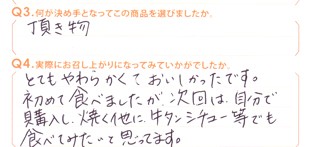 Q3.何が決め手となってこの商品を選びましたか。
頂き物
Q4.実際にお召し上がりになってみていかがでしたか。
とてもやわらかくておいしかったです。
初めて食べましたが、次回は、自分で
購入し、焼く他に、牛タンシチュー等でも
食べてみたいと思ってます。